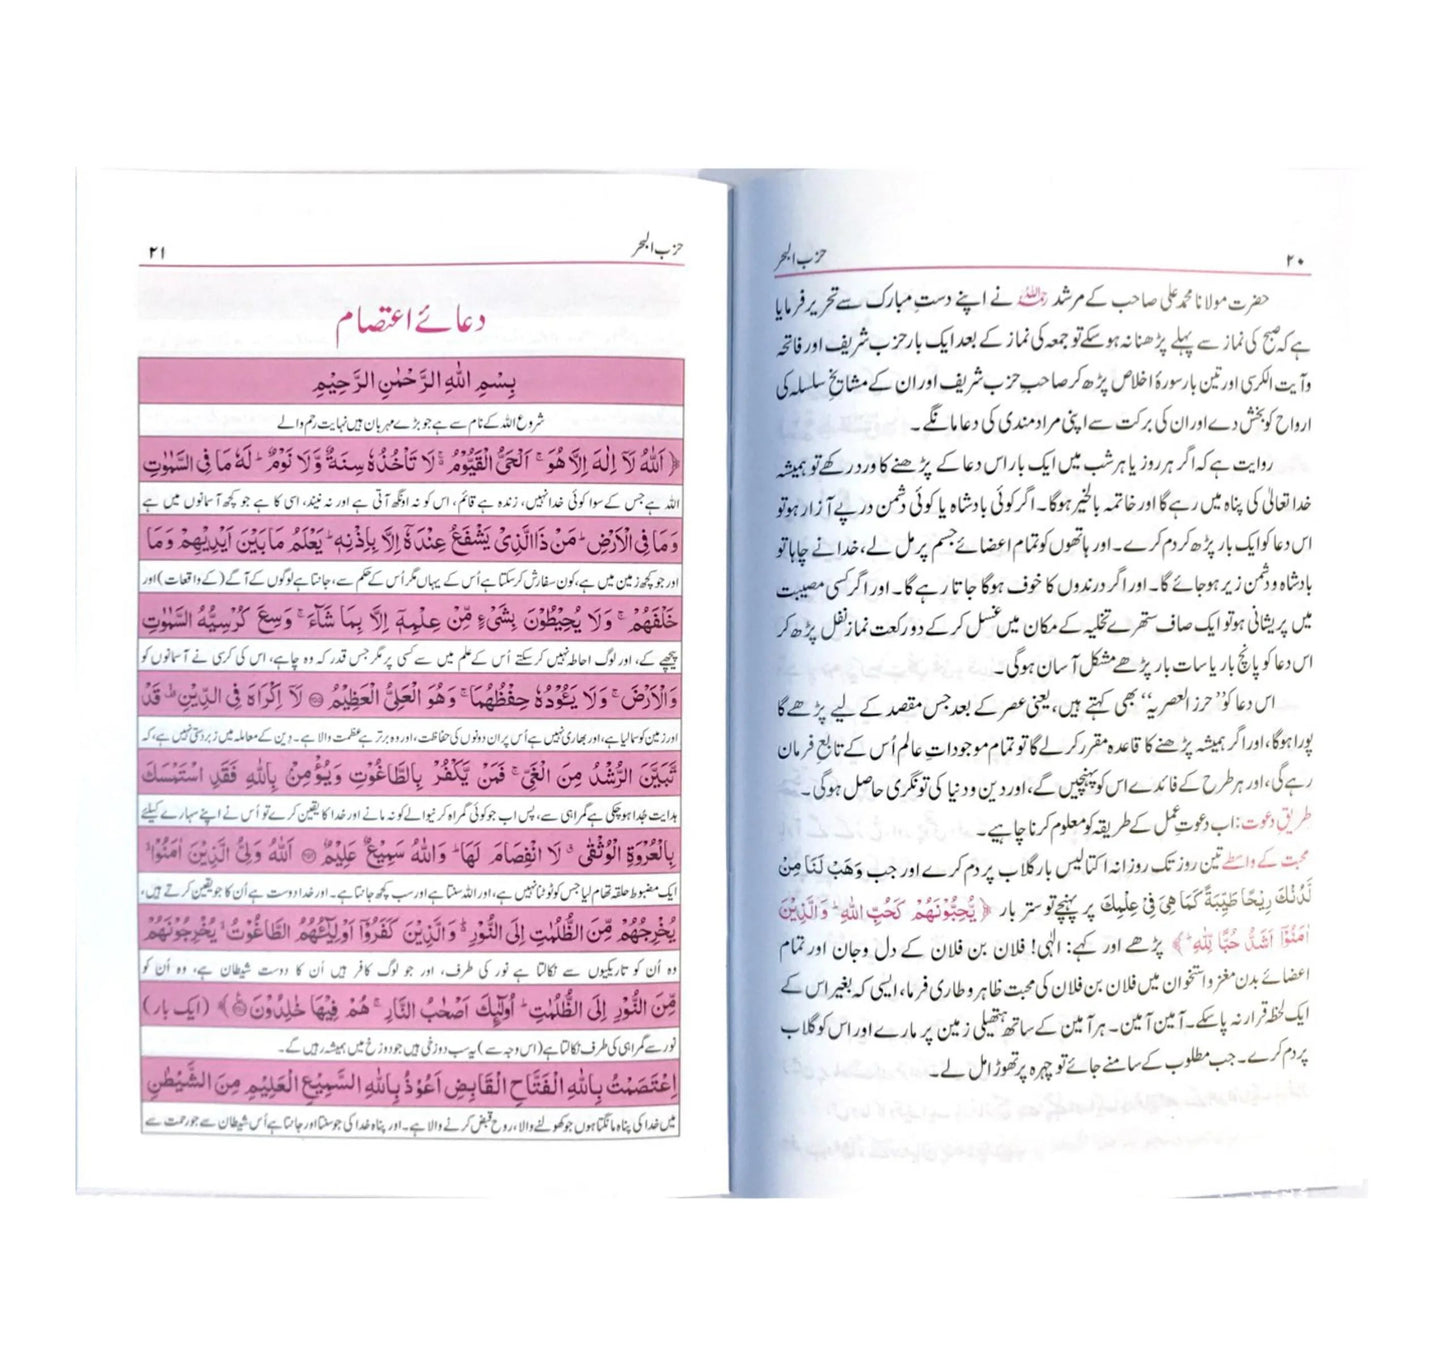 ۲۰
حزب البحر
حضرت مولانا محمد علی صاحب کے مرشد رحمہ اللہ نے اپنے دستِ مبارک سے تحریر فرمایا
ہے کہ صبح کی نماز سے پہلے پڑھنا نہ ہو سکے تو جمعہ کی نماز کے بعد ایک بار حزب شریف اور فاتحہ
و آیت الکرسی اور تین بار سورۂ اخلاص پڑھ کر صاحبِ حزب شریف اور ان کے مشایخِ سلسلہ کی
ارواح کو بخش دے اور ان کی برکت سے اپنی مراد مندی کی دعا مانگے۔
روایت ہے کہ اگر ہر روز یا ہر شب میں ایک بار اس دعا کے پڑھنے کا ورد رکھے تو ہمیشہ
خدا تعالیٰ کی پناہ میں رہے گا اور خاتمہ بالخیر ہوگا۔ اگر کوئی بادشاہ یا کوئی دشمن درپے آزار ہو تو
اس دعا کو ایک بار پڑھ کر دم کرے۔ اور ہاتھوں کو تمام اعضائے جسم پر مل لے، خدا نے چاہا تو
بادشاہ و دشمن زیر ہو جائے گا۔ اور اگر درندوں کا خوف ہوگا جاتا رہے گا۔ اور اگر کسی مصیبت
میں پریشانی ہو تو ایک صاف ستھرے تخلیہ کے مکان میں غسل کر کے دو رکعت نماز نفل پڑھ کر
اس دعا کو پانچ بار یا سات بار پڑھے مشکل آسان ہوگی۔
اس دعا کو ”حرز العصریہ“ بھی کہتے ہیں، یعنی عصر کے بعد جس مقصد کے لیے پڑھے گا
پورا ہوگا، اور اگر ہمیشہ پڑھنے کا قاعدہ مقرر کر لے گا تو تمام موجوداتِ عالم اُس کے تابع فرمان
رہے گی، اور ہر طرح کے فائدے اس کو پہنچیں گے، اور دین و دنیا کی تونگری حاصل ہوگی۔
طریقِ دعوت: اب دعوتِ عمل کے طریقہ کو معلوم کرنا چاہیے۔
محبت کے واسطے تین روز تک روزانہ اکتالیس بار گلاب پر دم کرے اور جب وَهَبْ لَنَا مِنْ
لَّدُنْكَ رِيْحًا طَيِّبَةً كَمَا هِيَ فِيْ عِلْمِكَ پر پہنچے تو ستر بار ﴿يُّحِبُّوْنَهُمْ كَحُبِّ اللهِ ؕ وَالَّذِيْنَ
اٰمَنُوْٓا اَشَدُّ حُبًّا لِّلّٰهِ ؕ﴾ پڑھے اور کہے: الٰہی! فلان بن فلان کے دل و جان اور تمام
اعضائے بدن مغز و استخوان میں فلان بن فلان کی محبت ظاہر و طاری فرما، ایسی کہ بغیر اس کے
ایک لحظہ قرار نہ پا سکے۔ آمین آمین۔ ہر آمین کے ساتھ ہتھیلی زمین پر مارے اور اس کو گلاب
پر دم کرے۔ جب مطلوب کے سامنے جائے تو چہرہ پر تھوڑا مل لے۔
حزب البحر
۲۱
دعائے اعتصام
بِسْمِ اللهِ الرَّحْمٰنِ الرَّحِيْمِ
شروع اللہ کے نام سے ہے جو بڑے مہربان ہیں نہایت رحم والے
﴿اَللهُ لَآ اِلٰهَ اِلَّا هُوَ ۚ اَلْحَيُّ الْقَيُّوْمُ ۚ لَا تَاْخُذُهٗ سِنَةٌ وَّلَا نَوْمٌ ؕ لَهٗ مَا فِى السَّمٰوٰتِ
اللہ ہے جس کے سوا کوئی خدا نہیں، زندہ ہے قائم، اس کو نہ اونگھ آتی ہے اور نہ نیند، اسی کا ہے جو کچھ آسمانوں میں ہے
وَمَا فِى الْاَرْضِ ؕ مَنْ ذَا الَّذِىْ يَشْفَعُ عِنْدَهٗٓ اِلَّا بِاِذْنِهٖ ؕ يَعْلَمُ مَا بَيْنَ اَيْدِيْهِمْ وَمَا
اور جو کچھ زمین میں ہے، کون سفارش کر سکتا ہے اُس کے یہاں مگر اُس کے حکم سے، جانتا ہے لوگوں کے آگے (کے واقعات) اور
خَلْفَهُمْ ۚ وَلَا يُحِيْطُوْنَ بِشَىْءٍ مِّنْ عِلْمِهٖٓ اِلَّا بِمَا شَآءَ ۚ وَسِعَ كُرْسِيُّهُ السَّمٰوٰتِ
پیچھے کے، اور لوگ احاطہ نہیں کر سکتے اُس کے علم میں سے کسی پر مگر جس قدر کہ وہ چاہے، اس کی کرسی نے آسمانوں کو
وَالْاَرْضَ ۚ وَلَا يَـُٔوْدُهٗ حِفْظُهُمَا ۚ وَهُوَ الْعَلِىُّ الْعَظِيْمُ ۝ لَآ اِكْرَاهَ فِى الدِّيْنِ ۙ قَدْ
اور زمین کو سما لیا ہے، اور بھاری نہیں ہے اُس پر ان دونوں کی حفاظت، اور وہ برتر ہے عظمت والا ہے۔ دین کے معاملہ میں زبردستی نہیں ہے، کہ
تَّبَيَّنَ الرُّشْدُ مِنَ الْغَىِّ ۚ فَمَنْ يَّكْفُرْ بِالطَّاغُوْتِ وَيُؤْمِنْ بِاللهِ فَقَدِ اسْتَمْسَكَ
ہدایت جُدا ہو چکی ہے گمراہی سے، پس اب جو کوئی گمراہ کرنیوالے کو نہ مانے اور خدا کا یقین کرے تو اُس نے اپنے سہارے کیلئے
بِالْعُرْوَةِ الْوُثْقٰى ۗ لَا انْفِصَامَ لَهَا ؕ وَاللهُ سَمِيْعٌ عَلِيْمٌ ۝ اَللهُ وَلِىُّ الَّذِيْنَ اٰمَنُوْا ۙ
ایک مضبوط حلقہ تھام لیا جس کو ٹوٹنا نہیں ہے، اور اللہ سنتا ہے اور سب کچھ جانتا ہے۔ اور خدا دوست ہے اُن کا جو یقین کرتے ہیں،
يُخْرِجُهُمْ مِّنَ الظُّلُمٰتِ اِلَى النُّوْرِ ؕ وَالَّذِيْنَ كَفَرُوْٓا اَوْلِيٰٓـُٔهُمُ الطَّاغُوْتُ ۙ يُخْرِجُوْنَهُمْ
وہ اُن کو تاریکیوں سے نکالتا ہے نور کی طرف، اور جو لوگ کافر ہیں اُن کا دوست شیطان ہے، وہ اُن کو
مِّنَ النُّوْرِ اِلَى الظُّلُمٰتِ ؕ اُولٰٓئِكَ اَصْحٰبُ النَّارِ ۚ هُمْ فِيْهَا خٰلِدُوْنَ ۝﴾ (ایک بار)
نور سے گمراہی کی طرف نکالتا ہے (اس وجہ سے) یہ سب دوزخی ہیں جو دوزخ میں ہمیشہ رہیں گے۔
اِعْتَصَمْتُ بِاللهِ الْفَتَّاحِ الْقَابِضِ اَعُوْذُ بِاللهِ السَّمِيْعِ الْعَلِيْمِ مِنَ الشَّيْطٰنِ
میں خدا کی پناہ مانگتا ہوں جو کھولنے والا، روح قبض کرنے والا ہے۔ اور پناہ خدا کی جو سنتا اور جانتا ہے اُس شیطان سے جو رحمت سے